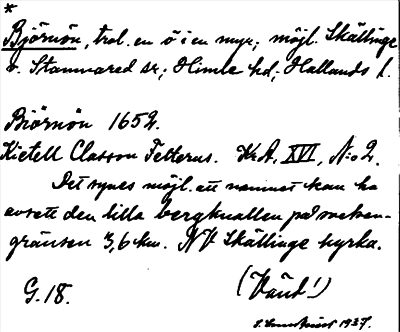 *
Björnön, trol. en ö i en myr; möjl. Skällinge
o. Stamnared sr; Himle hd; Hallands l.
Biörnön 1652.
Kietell Classon Felterus. Kr.A, XVI, N:o 2.
Det synes möjl. att namnet kan ha
avsett den lilla bergknallen på socken-
gränsen 3,6 km. NV Skällinge kyrka.
G. 18.
(Vänd!)
1937.